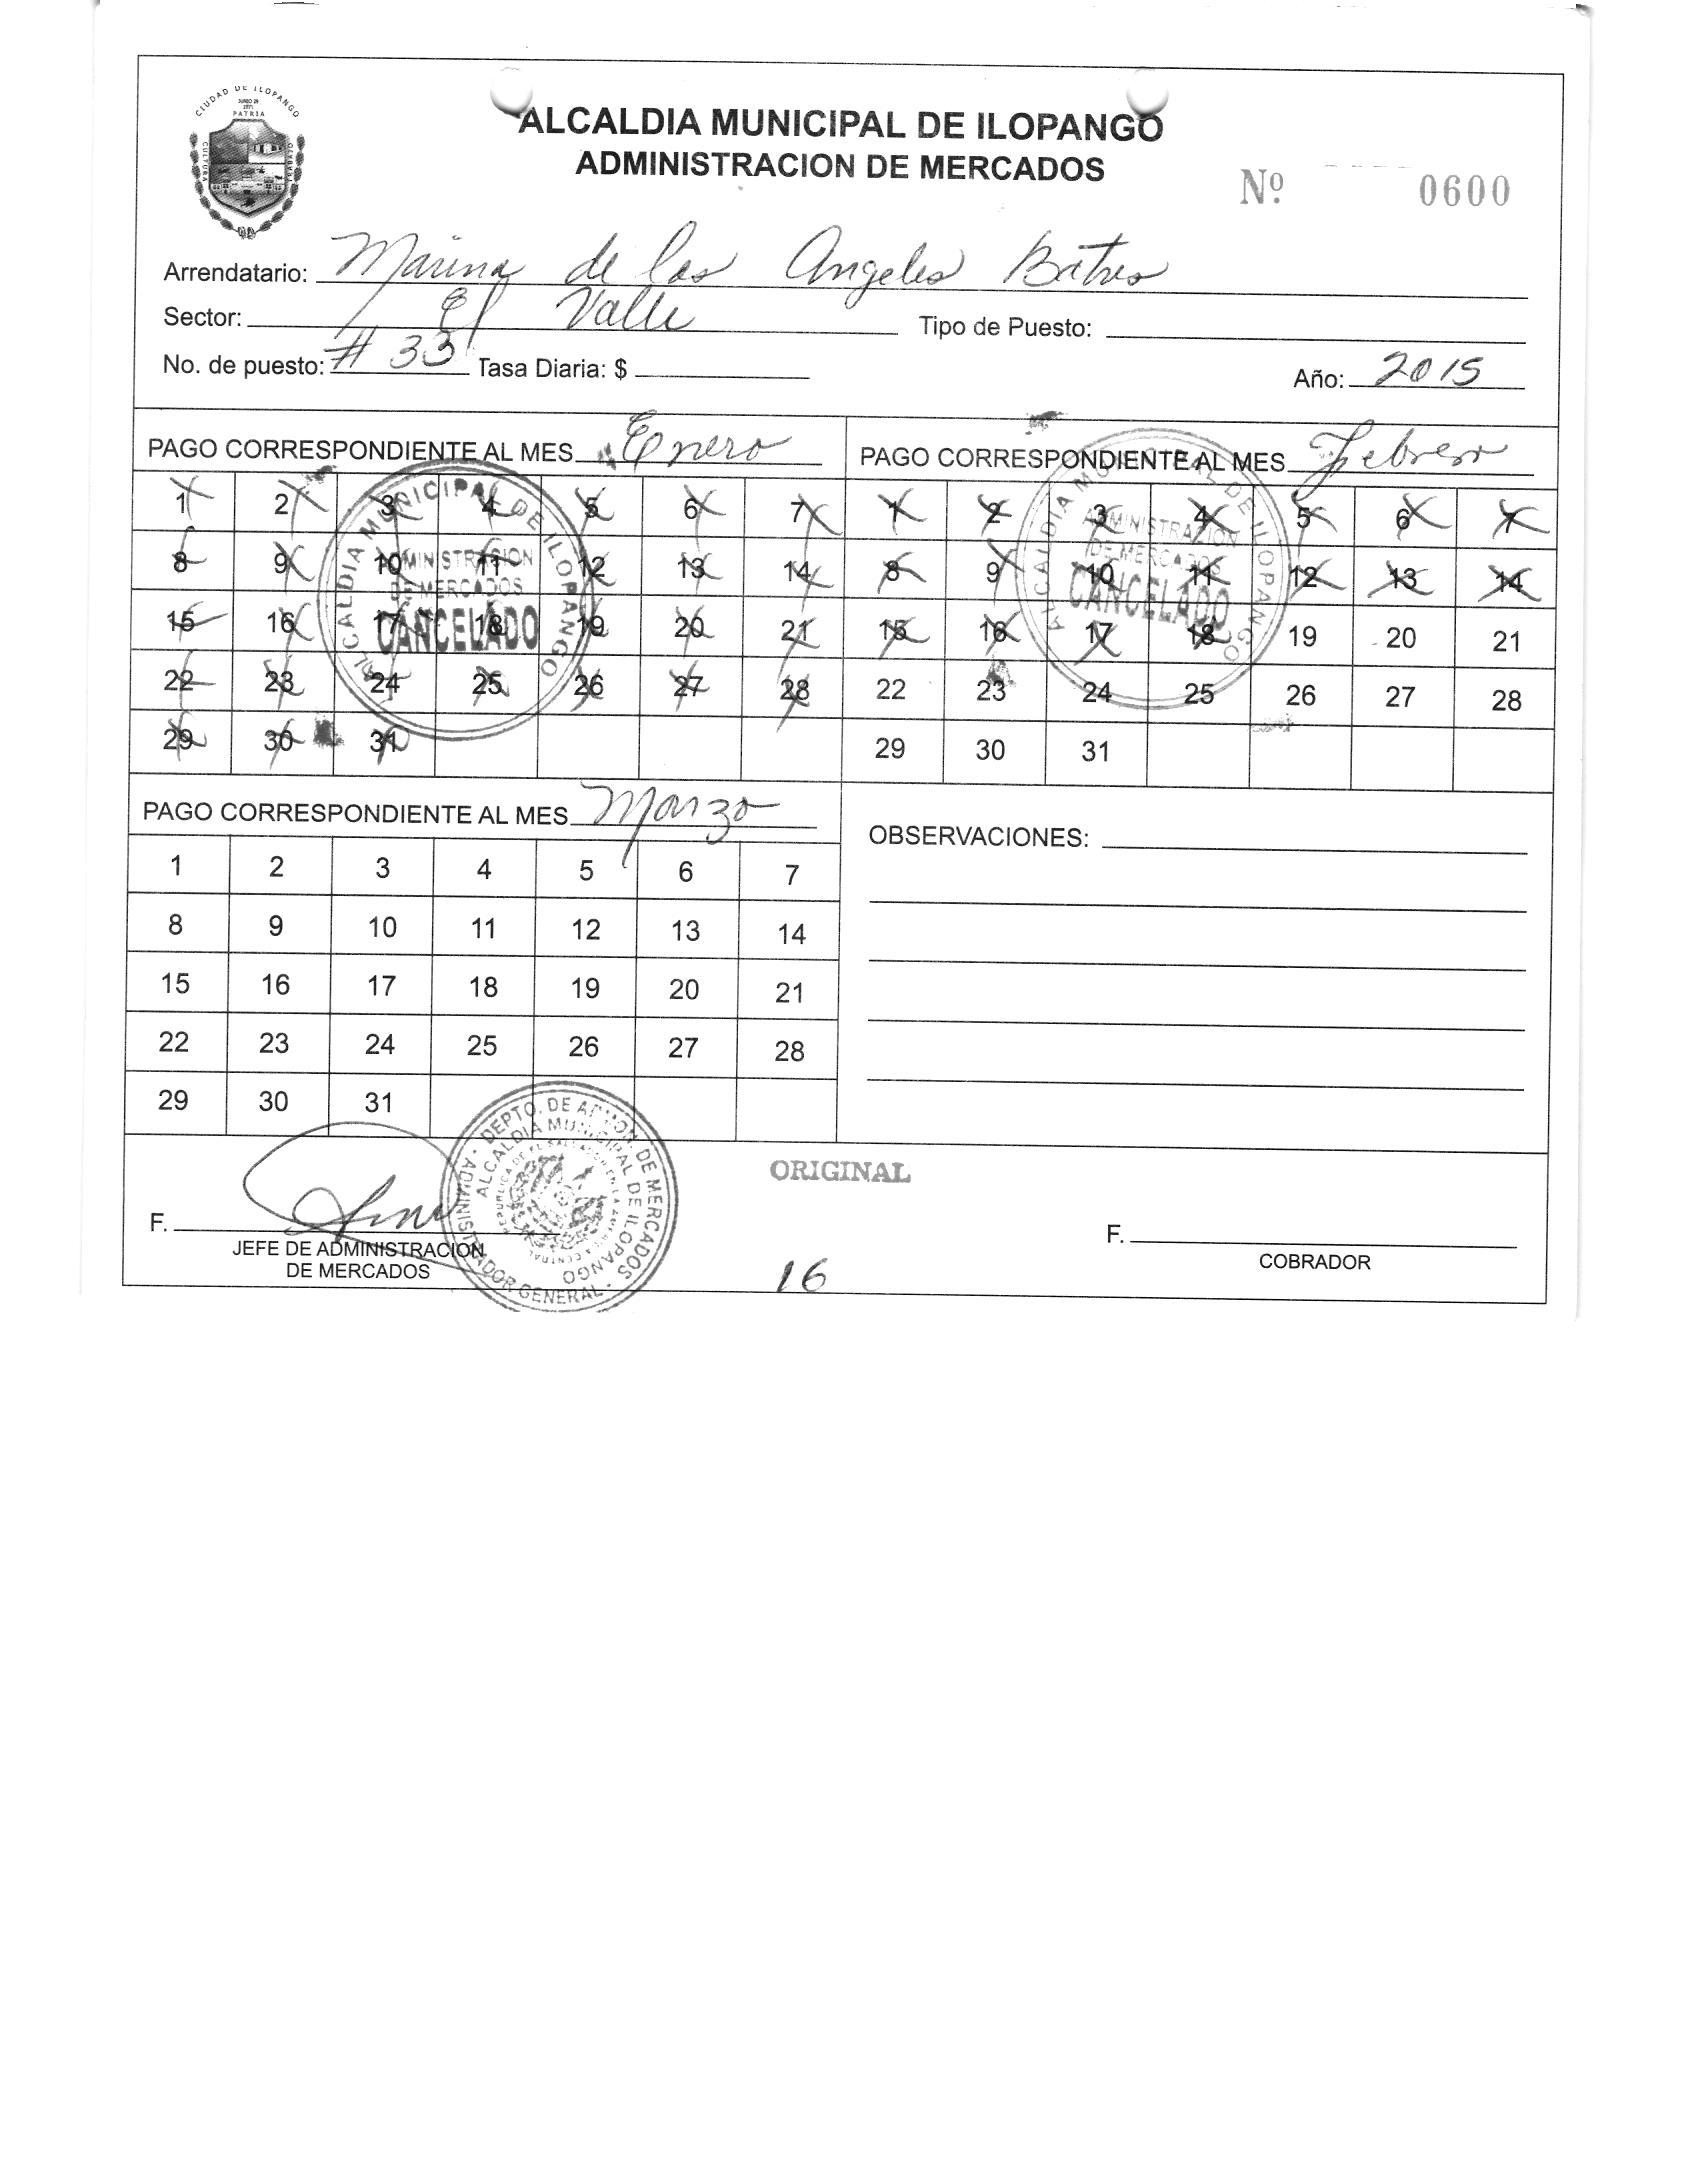 CIUDAD DE ILOPANGO
PATRIA
CULTURA
ALCALDIA MUNICIPAL DE ILOPANGO
ADMINISTRACION DE MERCADOS
Nº 0600
Arrendatario: Marina de los Angeles Batres
Sector: El Valle Tipo de Puesto:
No. de puesto: # 33 Tasa Diaria: $ Año: 2015
PAGO CORRESPONDIENTE AL MES Enero
1 2 3 4 5 6 7
8 9 10 11 12 13 14
15 16 17 18 19 20 21
22 23 24 25 26 27 28
29 30 31
ALCALDIA MUNICIPAL DE ILOPANGO
ADMINISTRACION
DE MERCADOS
CANCELADO
PAGO CORRESPONDIENTE AL MES Febrero
1 2 3 4 5 6 7
8 9 10 11 12 13 14
15 16 17 18 19 20 21
22 23 24 25 26 27 28
29 30 31
ALCALDIA MUNICIPAL DE ILOPANGO
ADMINISTRACION
DE MERCADOS
CANCELADO
PAGO CORRESPONDIENTE AL MES Marzo
1 2 3 4 5 6 7
8 9 10 11 12 13 14
15 16 17 18 19 20 21
22 23 24 25 26 27 28
29 30 31
OBSERVACIONES:
ORIGINAL
F.
JEFE DE ADMINISTRACION
DE MERCADOS
DEPTO. DE ADMON. DE MERCADOS
ADMINISTRADOR GENERAL
ALCALDIA MUNICIPAL DE ILOPANGO
16
F.
COBRADOR